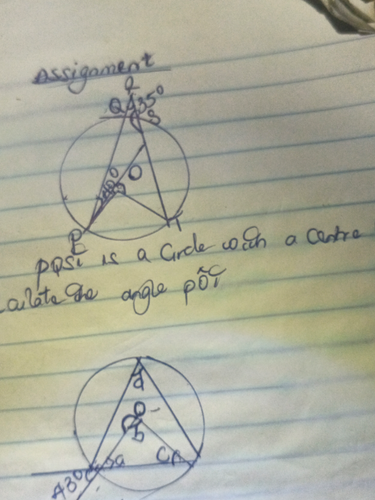 Assignment
Q
35°
S
O
P
T
PQST is a Circle with a Centre
the angle PÔT
d
O
b
43°
a
C